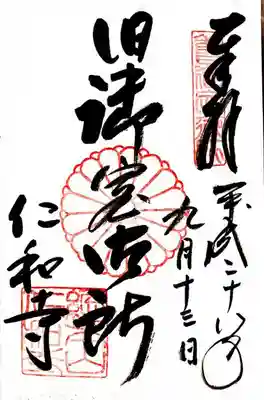 奉拝
平成二十八年
九月十三日
旧御室御所
仁和寺